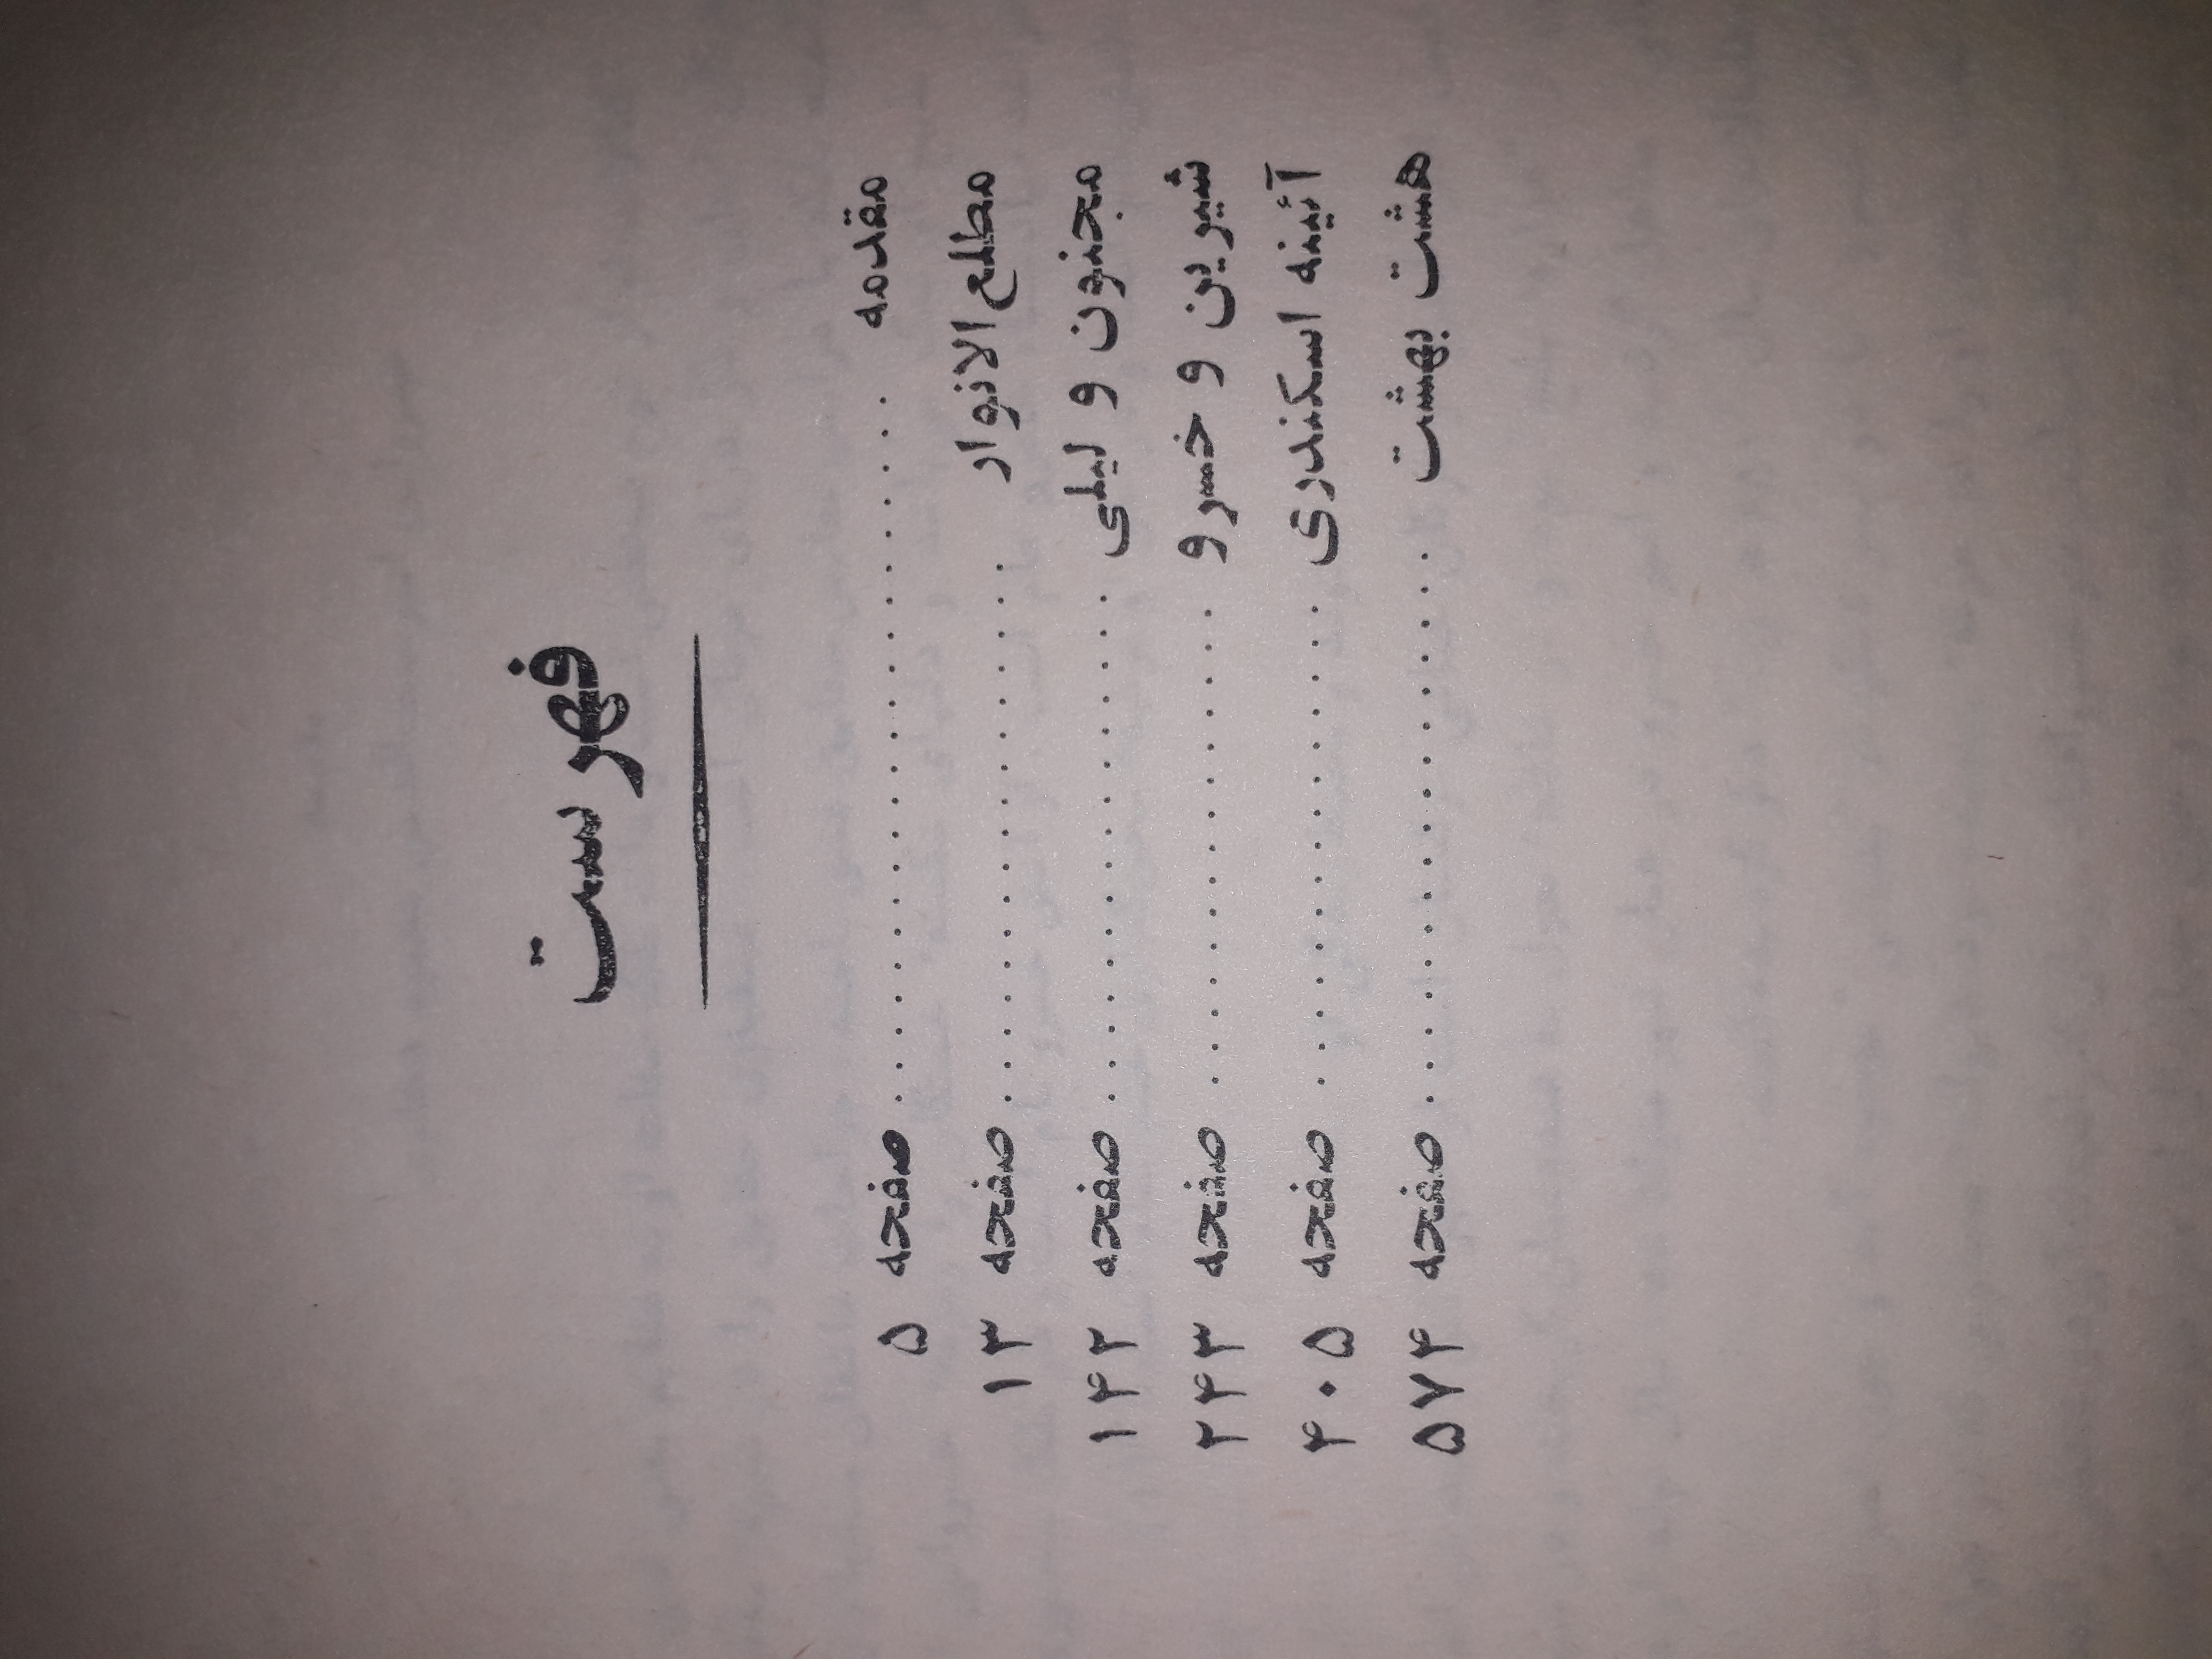 فهرست
مقدمه . . . . . . . . . . . . . . . . . . . . . . صفحه ۵
مطلع الانوار . . . . . . . . . . . . . . . . . صفحه ۱۳
مجنون و لیلی . . . . . . . . . . . . . . . . صفحه ۱۴۲
شیرین و خسرو . . . . . . . . . . . . . . . صفحه ۲۴۳
آئینه اسکندری . . . . . . . . . . . . . . . صفحه ۴۰۵
هشت بهشت . . . . . . . . . . . . . . . . . صفحه ۵۷۴